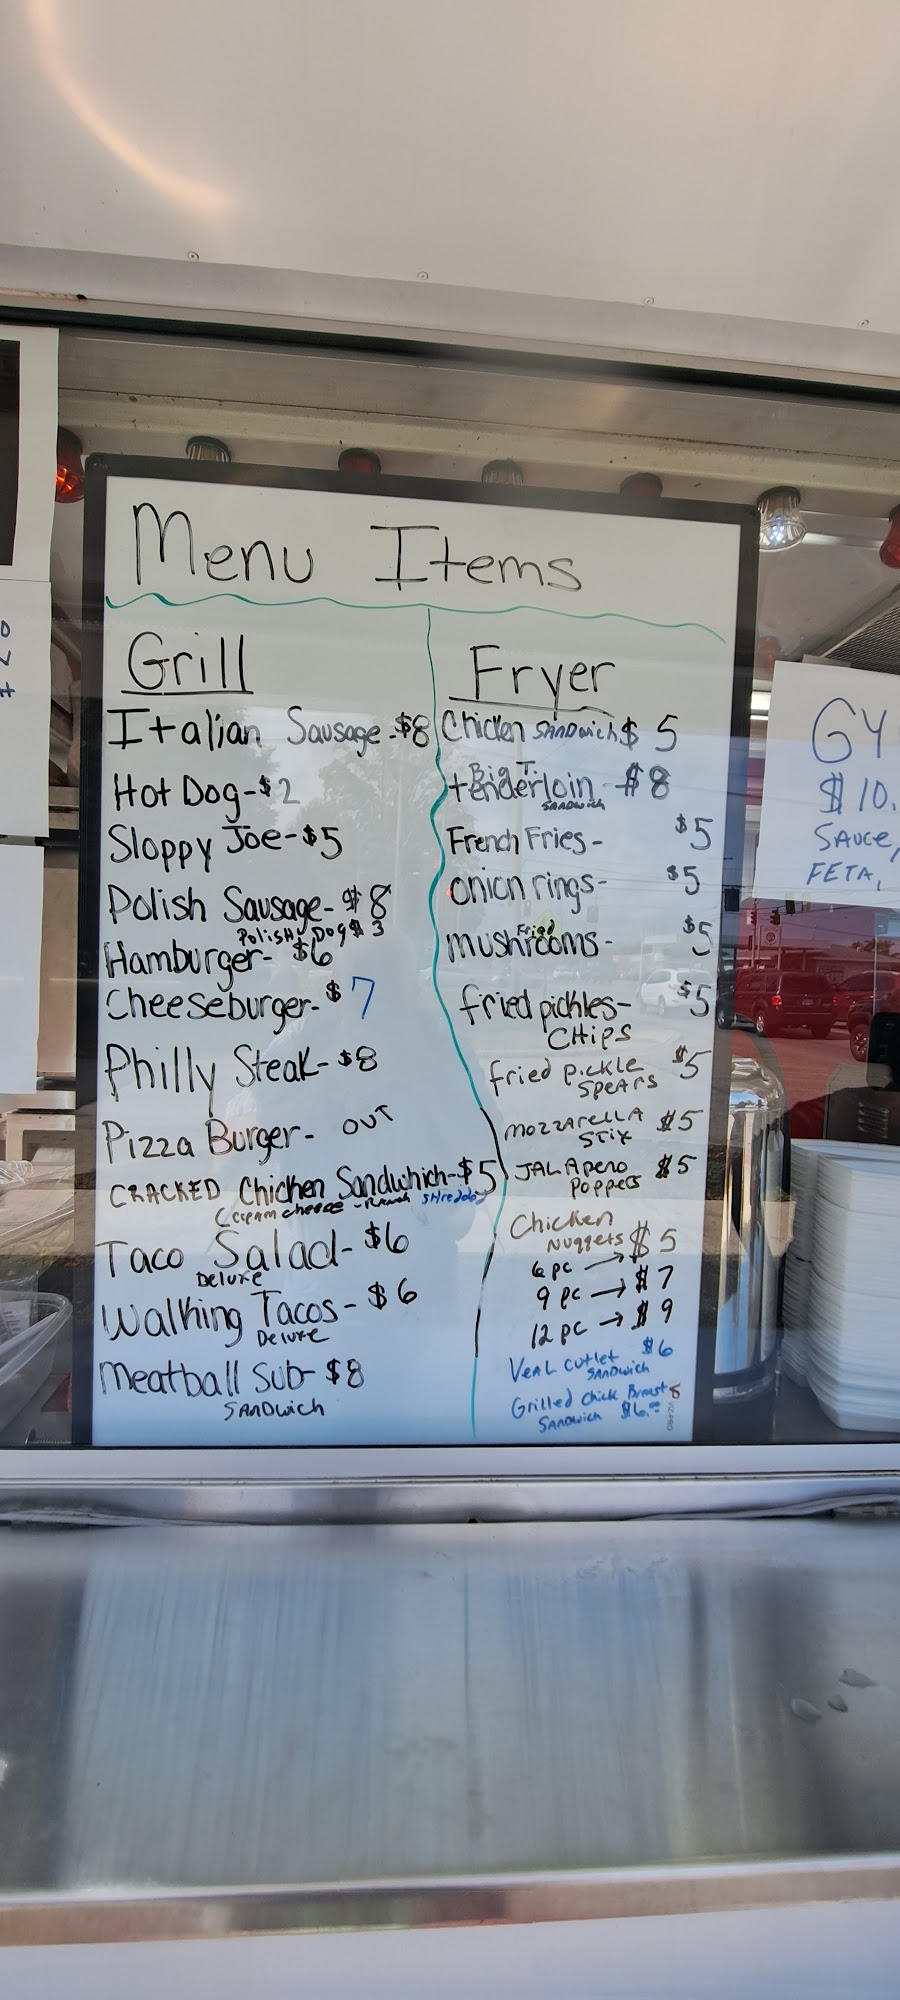 Menu Items
Grill
Italian Sausage-$8
Hot Dog-$2
Sloppy Joe-$5
Polish Sausage-$8
Polish Dog $3
Hamburger-$6
Cheeseburger-$7
Philly Steak-$8
Pizza Burger- OUT
CRACKED Chicken Sandwhich-$5
(cream cheese - Ranch shredded
Taco Salad-$6
Deluxe
Walking Tacos-$6
Deluxe
Meatball Sub-$8
SANDwich
Fryer
Chicken SANDwich $5
Big T.
tenderloin-$8
SANDwich
French Fries- $5
onion rings- $5
Fried
mushrooms- $5
fried pickles- $5
CHips
fried pickle $5
SPEARS
mozzarella $5
STIX
JALApeno $5
Poppers
Chicken
Nuggets $5
6 pc → 
9 pc → $7
12 pc → $9
VEAL CUTLET $6
SANDwich
Grilled Chick Breast
SANDwich $6.00
VIZ-PRO
GY
$10.
SAUCE,
FETA,